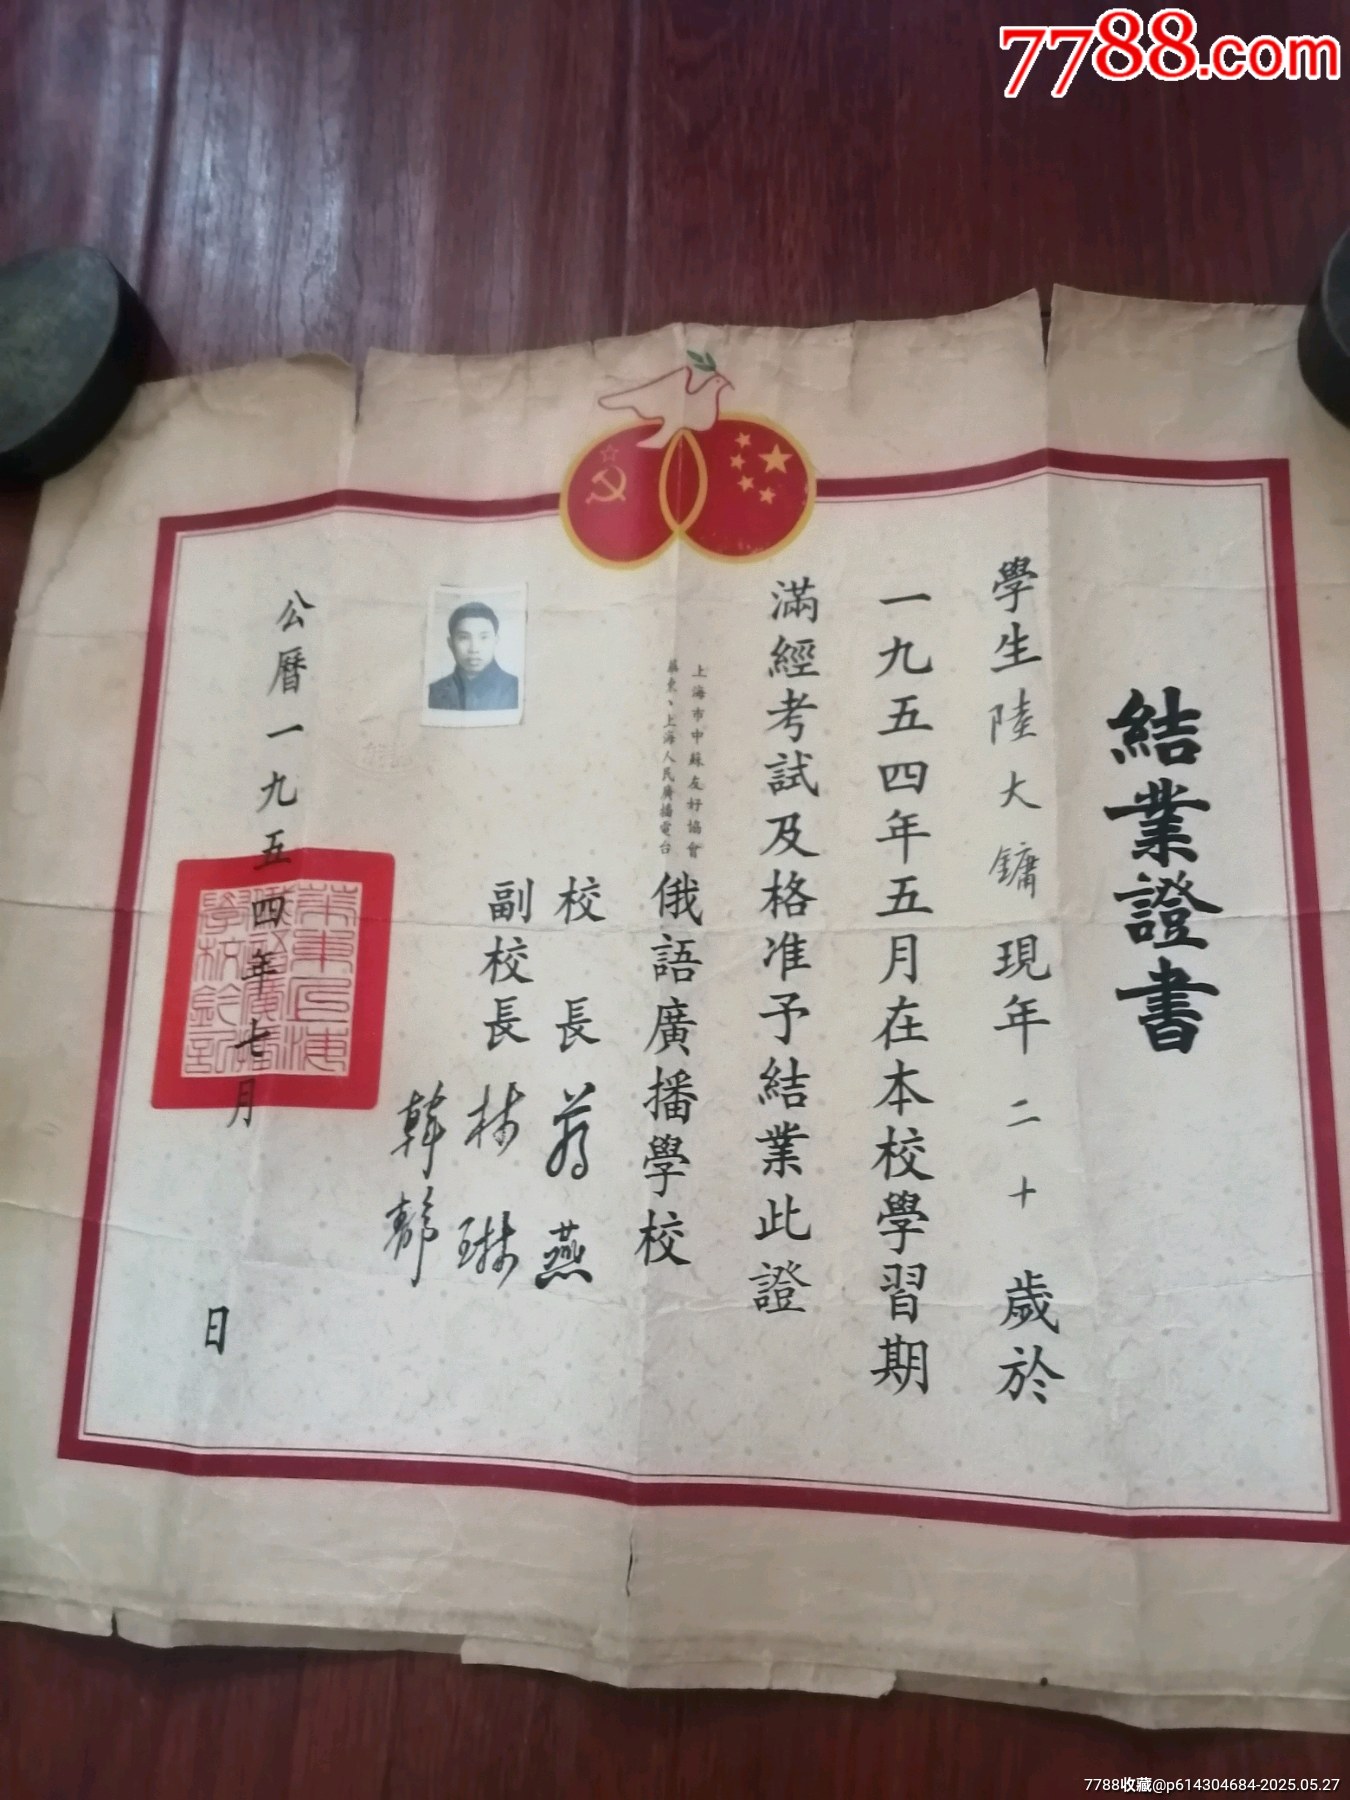 7788.com
結業證書
學生陸大鏞現年二十歲於
一九五四年五月在本校學習期
滿經考試及格准予結業此證
上海市中蘇友好協會
華東、上海人民廣播電台
俄語廣播學校
校長
燕
副校長林琳
韓
公曆一九五四年七月日
7788收藏@p614304684-2025.05.27